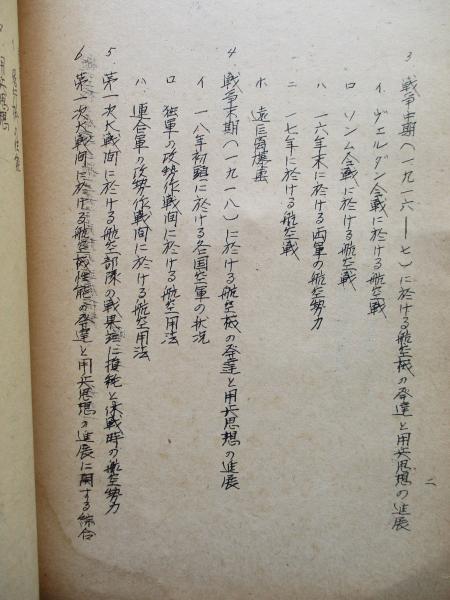 二
3 戦争中期(一九一六―七)に於ける航空機の発達と用兵思想の進展
イ ヴェルダン会戦に於ける航空戦
ロ ソンム会戦に於ける航空戦
ハ 一六年末に於ける両軍の航空勢力
ニ 一七年に於ける航空戦
ホ 遠距離爆撃
4 戦争末期(一九一八)に於ける航空機の発達と用兵思想の進展
イ 一八年初頭に於ける各国空軍の状況
ロ 独軍の攻勢作戦间に於ける航空用法
ハ 連合軍の攻勢作戦间に於ける航空用法
5 第一次大戦间に於ける航空部隊の戦果並に損耗と休戦時の航空勢力
6 第一次大戦间に於ける航空機性能の発達と用兵思想の進展に関する綜合
用兵思想